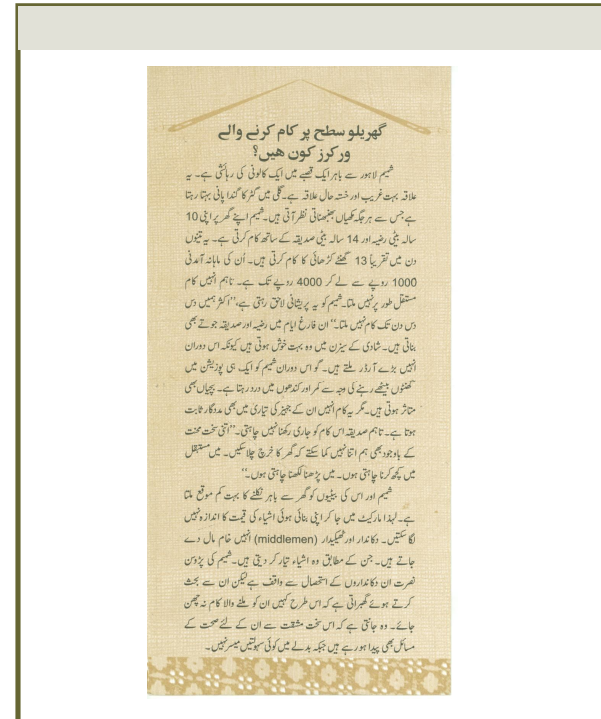 گھریلو سطح پر کام کرنے والے
ورکرز کون ھیں؟
شمیم لاہور سے باہر ایک قصبے میں ایک کالونی کی رہائشی ہے۔ یہ
علاقہ بہت غریب اور خستہ حال علاقہ ہے۔ گلی میں گٹر کا گندا پانی بہتا رہتا
ہے جس سے ہر جگہ مکھیاں بھنبھناتی نظر آتی ہیں۔ شمیم اپنے گھر پر اپنی 10
سالہ بیٹی رضیہ اور 14 سالہ بیٹی صدیقہ کے ساتھ کام کرتی ہے۔ یہ تینوں
دن میں تقریباً 13 گھنٹے کڑھائی کا کام کرتی ہیں۔ اُن کی ماہانہ آمدنی
1000 روپے سے لے کر 4000 روپے تک ہے۔ تاہم انہیں کام
مستقل طور پر نہیں ملتا۔ شمیم کو یہ پریشانی لاحق رہتی ہے، ”اکثر ہمیں دس
دس دن تک کام نہیں ملتا۔“ ان فارغ ایام میں رضیہ اور صدیقہ جوتے بھی
بناتی ہیں۔ شادی کے سیزن میں وہ بہت خوش ہوتی ہیں کیونکہ اس دوران
انہیں بڑے آرڈر ملتے ہیں۔ گو اس دوران شمیم کو ایک ہی پوزیشن میں
گھنٹوں بیٹھے رہنے کی وجہ سے کمر اور کندھوں میں درد رہتا ہے۔ بچیاں بھی
متاثر ہوتی ہیں۔ مگر یہ کام انہیں ان کے جہیز کی تیاری میں بھی مددگار ثابت
ہوتا ہے۔ تاہم صدیقہ اس کام کو جاری رکھنا نہیں چاہتی۔ ”اتنی سخت محنت
کے باوجود بھی ہم اتنا نہیں کما سکتے کہ گھر کا خرچ چلا سکیں۔ میں مستقبل
میں کچھ کرنا چاہتی ہوں۔ میں پڑھنا لکھنا چاہتی ہوں۔“
شمیم اور اس کی بیٹیوں کو گھر سے باہر نکلنے کا بہت کم موقع ملتا
ہے۔ لہذا مارکیٹ میں جا کر اپنی بنائی ہوئی اشیاء کی قیمت کا اندازہ نہیں
لگا سکتیں۔ دکاندار اور ٹھیکیدار (middlemen) انہیں خام مال دے
جاتے ہیں۔ جن کے مطابق وہ اشیاء تیار کر دیتی ہیں۔ شمیم کی پڑوسن
نصرت ان دکانداروں کے استحصال سے واقف ہے لیکن ان سے بحث
کرتے ہوئے گھبراتی ہے کہ اس طرح کہیں ان کو ملنے والا کام نہ چھن
جائے۔ وہ جانتی ہے کہ اس سخت مشقت سے ان کے لئے صحت کے
مسائل بھی پیدا ہو رہے ہیں جبکہ بدلے میں کوئی سہولتیں میسر نہیں۔